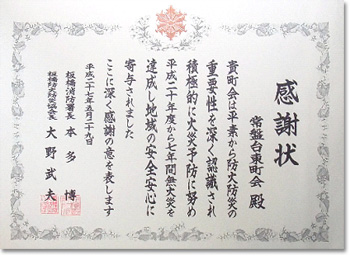 感謝状
常盤台東町会 殿
貴町会は平素から防火防災の
重要性を深く認識され
積極的に火災予防に努め
平成二十年度から七年間無火災を
達成し地域の安全安心に
寄与されました
ここに深く感謝の意を表します
平成二十七年五月二十九日
板橋消防署長 本多 博
板橋防火防災協会長 大野武夫